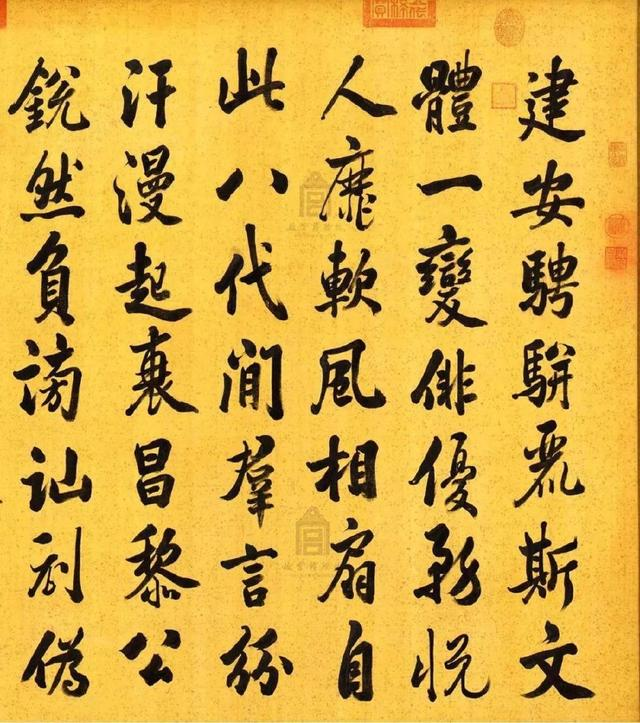 建安騁駢麗斯文
體一變俳優務悅
人靡軟風相扇自
此八代間羣言紛
汗漫起衰昌黎公
銳然負謗訕偽